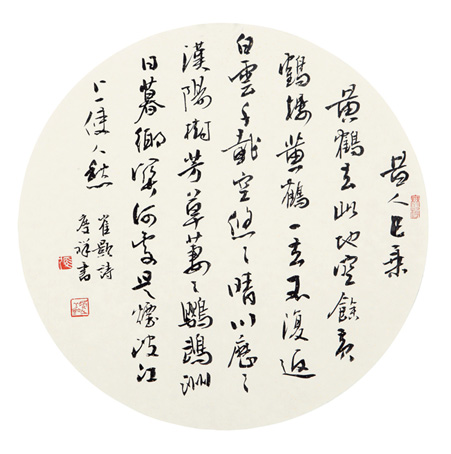 昔人已乘
黃鶴去此地空餘黃
鶴樓黃鶴一去不復返
白雲千載空悠〻晴川歷〻
漢陽樹芳草萋〻鸚鵡洲
日暮鄉關何處是煙波江
上使人愁
崔顥詩
祥書